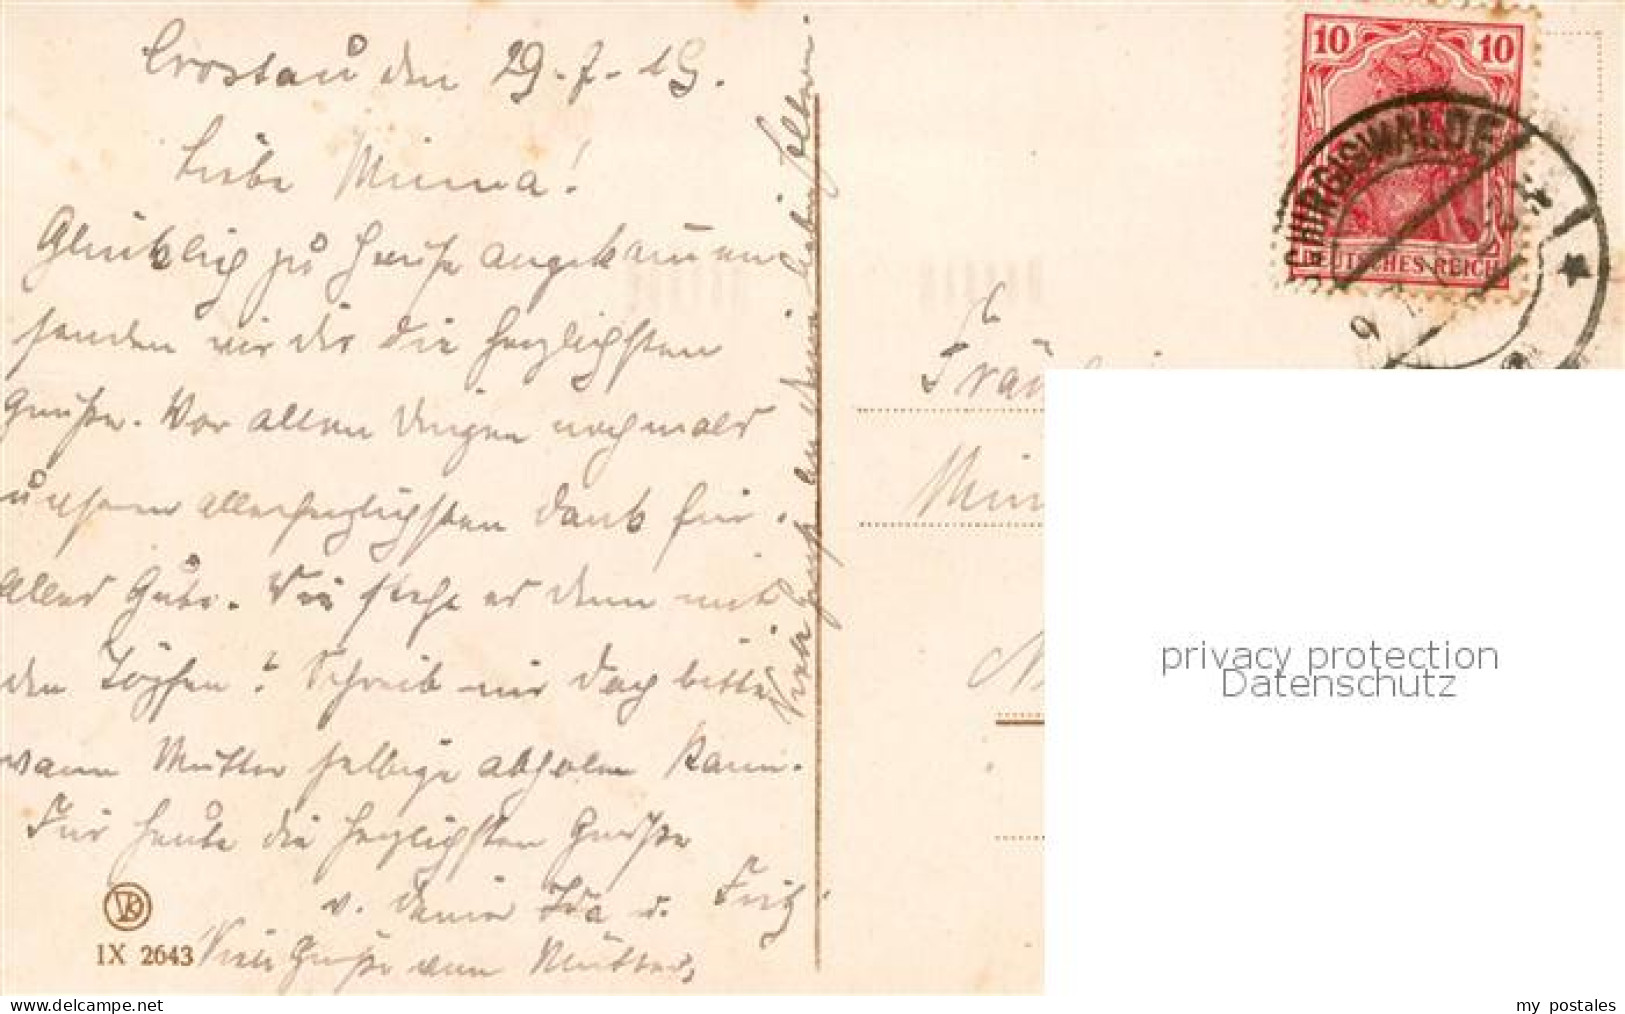 Crostau den 29.7.19.
Liebe Minna!
Glücklich zu Hause angekommen
senden wir dir die herzlichsten
Grüße. Vor allen Dingen nochmals
unseren allerherzlichsten Dank für
alles Gute. Wie steht es denn mit
den Töpfen? Schreib mir doch bitte
wann Mutter selbige abholen kann.
Für heute die herzlichsten Grüße
v. deiner Ida u. Fritz.
Viele Grüße von Mutter,
IX 2643
10 10
DEUTSCHES REICH
SCHIRGISWALDE
Fräu
Min
privacy protection
Datenschutz
my postales